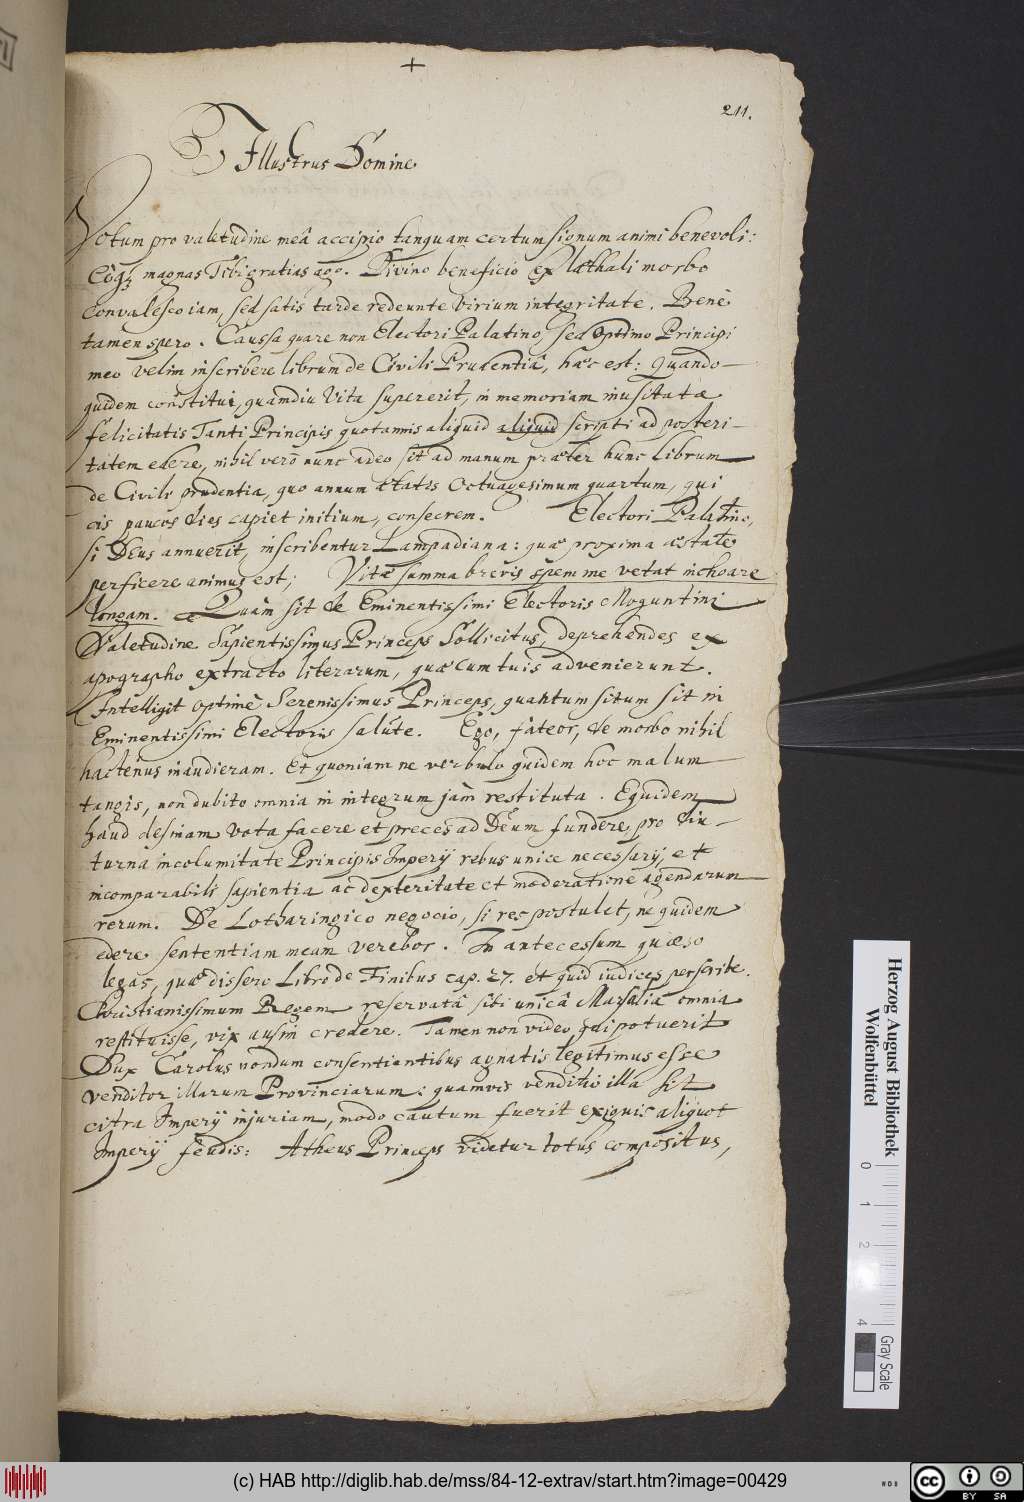 +
211.
Illustrus Domine
Votum pro valetudine meâ accipio tanquam certum signum animi benevoli:
Eoq; magnas Tibi gratias ago. Divino beneficio ex laethali morbo
convalesco iam, sed satis tarde redeunte virium integritate. Benè
tamen spero. Caussa quare non Electori Palatino, sed optimo Principi
meo velim inscribere librum de Civili Prudentiâ, haec est: Quando-
quidem constitui, quamdiu vita supererit, in memoriam inusitatae
felicitatis Tanti Principis quotannis aliquid aliquid scripti ad posteri-
tatem edere, nihil verò nunc adeo sit ad manum praeter hunc librum
de Civili prudentia, quo annum aetatis octuagesimum quartum, qui
cis paucos dies capiet initium, consecrem. Electori Palatino,
si Deus annuerit, inscribentur Lampadiana: quae proxima aestate
perficere animus est; Vitae summa brevis spem me vetat inchoare
longam. Quàm sit de Eminentissimi Electoris Moguntini
Valetudine Sapientissimus Princeps Sollicitus, deprehendes ex
apographo extracto literarum, quae cum tuis advenierunt.
Intelligit optimè Serenissimus Princeps, quantum situm sit in
Eminentissimi Electoris salute. Ego, fateor, de morbo nihil
hactenus inaudieram. Et quoniam ne verbulo quidem hoc malum
tangis, non dubito omnia in integrum jam restituta. Equidem
haud desinam vota facere et preces ad Deum fundere, pro diu-
turna incolumitate Principis Imperij rebus unice necessarij, et
incomparabili sapientia ac dexteritate et moderatione agendarum
rerum. De Lotharingico negocio, si res postulet, ne quidem
edere sententiam meam verebor. In antecessum quaeso
legas, quae dissero Libro de Finibus cap. 27. et quid iudices perscribe.
Christianissimum Regem reservatâ sibi unicâ Marsalia omnia
restituisse, vix ausim credere. Tamen non video, qui potuerit
Dux Carolus nondum consentientibus agnatis legitimus esse
venditor illarum Provinciarum: quamvis venditio illa sit
citra Imperij injuriam, modo cautum fuerit exiguis aliquot
Imperij feudis: Atheus Princeps videtur totus compositus,
Herzog August Bibliothek
Wolfenbüttel
0 1 2 4
Gray Scale
(c) HAB http://diglib.hab.de/mss/84-12-extrav/start.htm?image=00429
cc BY SA